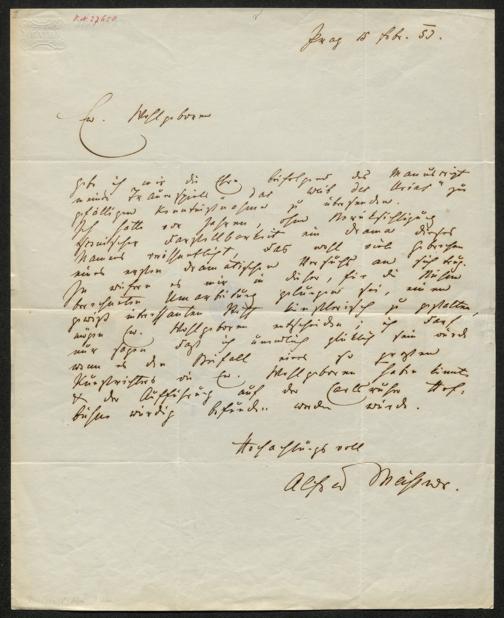 K.A. 27650
Prag 15 Febr. 53.
Ew. Wohlgeboren
gebe ich mir die Ehre beifolgend das Manuskript
meines Trauerspiels "das Weib des Urias" zu
gefälligen Kenntnißnahme zu übersenden.
Ich hatte vor Jahren, ohne Berücksichtigung
scenischer Darstellbarkeit ein Drama dieses
Namens veröffentlicht, das wohl viele Gebrechen
eines ersten dramatischen Versuchs an sich trug.
In wiefern es mir in dieser, für die Bühne
berechneten Umarbeitung gelungen sei, einen
gewiß interessanten Stoff künstlerisch zu gestalten,
mögen Ew. Wohlgeboren entscheiden; ich darf
nur sagen daß ich unendlich glücklich sein würde
wenn es den Beifall eines so großen
Kunstrichters wie Ew. Wohlgeboren haben könnte
& der Aufführung auf der Carlsruher Hof-
bühne würdig befunden werden würde.
Hochachtungsvoll
Alfred Meißner.